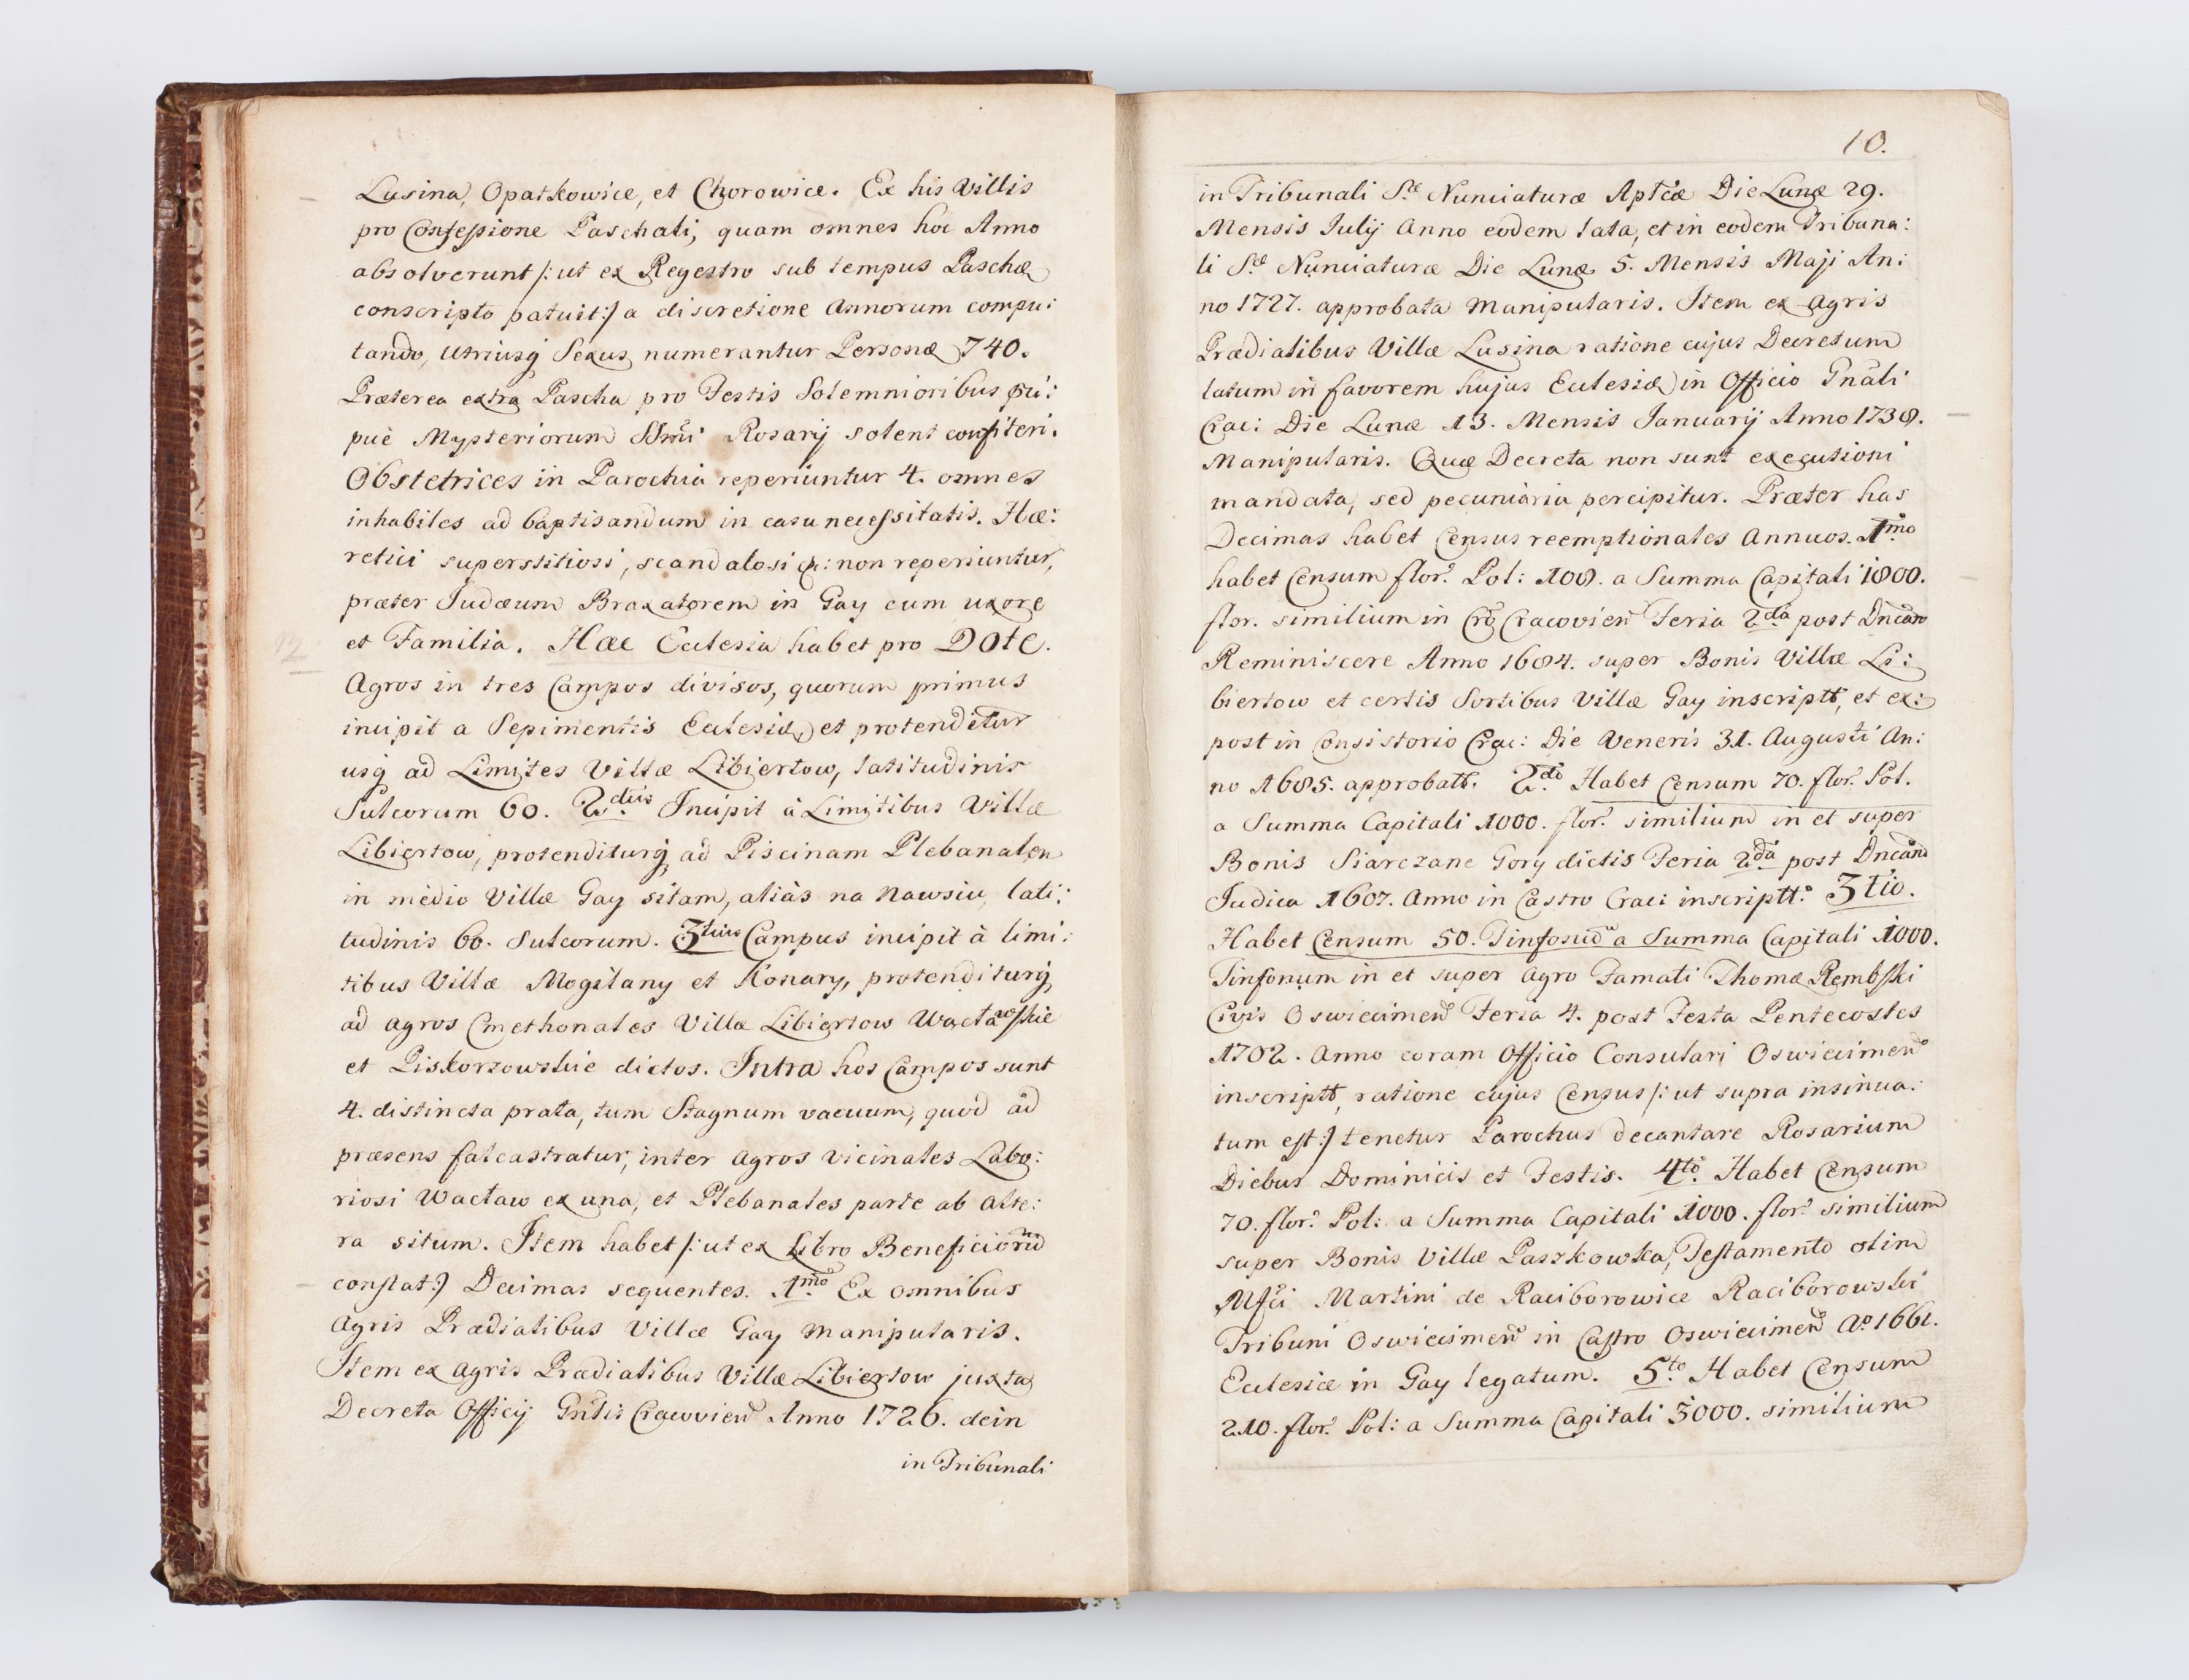 Lusina, Opatkowice, et Chorowice. Ex his Villis
pro Confessione Paschali, quam omnes hoc Anno
absolverunt /: ut ex Regestro sub tempus Paschæ
conscripto patuit :/ a discretione Annorum compu:
tando, utriusq Sexus numerantur Personæ 740.
Præterea extra Pascha pro Festis Solemnioribus
puè Mysteriorum SSmi Rosarij solent confiteri.
Obstetrices in Parochia reperiuntur 4. omnes
inhabiles ad baptisandum in casu necessitatis. Hæ:
retici superstitiosi, scandalosi &: non reperiuntur,
præter Judæum Braxatorem in Gay cum uxore
et Familia. Hæc Ecclesia habet pro Dote.
Agros in tres Campos divisos, quorum primus
incipit a Sepimentis Ecclesiæ, et protenditur
usq ad Limites Villæ Libiertow, latitudinis
Sulcorum 60. 2dus Incipit à Limitibus Villæ
Libiertow, protenditurq ad Piscinam Plebanalem
in medio Villæ Gay sitam, aliàs na Nawsiu, lati:
tudinis 60. Sulcorum. 3tius Campus incipit à limi:
tibus Villæ Mogilany et Konary, protenditurq
ad agros Cmethonales Villæ Libiertow Wactawskie
et Piskorzowskie dictos. Intra hos Campos sunt
4. distincta prata, tum Stagnum vacuum, quod ad
præsens falcastratur, inter agros vicinales Labo:
riosi Wactaw ex una, et Plebanales parte ab alte:
ra situm. Item habet /: ut ex Libro Beneficiorũ
constat :/ Decimas sequentes. 1mo Ex omnibus
Agris Prædialibus Villæ Gay Manipularis.
Item ex agris Prædialibus Villæ Libiertow juxta
Decreta Officij Gnlis Cracovien Anno 1726. dein
in Tribunali
10.
in Tribunali S.æ Nunciaturæ Aplicæ Die Lunæ 29.
Mensis Julij Anno eodem lata, et in eodem Tribuna:
li S.æ Nunciaturæ Die Lunæ 5. Mensis Maji An:
no 1727. approbata Manipularis. Item ex Agris
Prædialibus Villæ Lusina ratione cujus Decretum
latum in favorem hujus Ecclesiæ in Officio Gnali
Crac: Die Lunæ 13. Mensis Januarij Anno 1738.
Manipularis. Quæ Decreta non sunt executioni
mandata, sed pecuniaria percipitur. Præter has
Decimas habet Census reemptionales Annuos. 1mo
habet Censum flor. Pol: 108. a Summa Capitali 1800.
flor. similium in Cro Cracovien Feria 2da post Dncam
Reminiscere Anno 1684. super Bonis Villæ Li:
biertow et certis Sortibus Villæ Gay inscriptt, et ex:
post in Consistorio Crac: Die Veneris 31. Augusti An:
no 1685. approbatt. 2do Habet Censum 70. flor. Pol.
a Summa Capitali 1000. flor. similium in et super
Bonis Siarczane Gory dictis Feria 2da post Dncam
Judica 1607. Anno in Castro Crac: inscriptt. 3tio.
Habet Censum 50. Tinfonũ a Summa Capitali 1000.
Tinfonum in et super agro Famati Thomæ Rembski
Civis Oswiecimen Feria 4. post Festa Pentecostes
1702. Anno coram Officio Consulari Oswiecimen
inscriptt, ratione cujus Census /: ut supra insinua:
tum est :/ tenetur Parochus decantare Rosarium
Diebus Dominicis et Festis. 4to. Habet Censum
70. flor. Pol: a Summa Capitali 1000. flor. similium
super Bonis Villæ Paszkowka, Testamento olim
Mfci Martini de Raciborowice Raciborowski
Tribuni Oswiecimen in Castro Oswiecimen Ao 1661.
Ecclesiæ in Gay legatum. 5to. Habet Censum
210. flor. Pol: a Summa Capitali 3000. similium